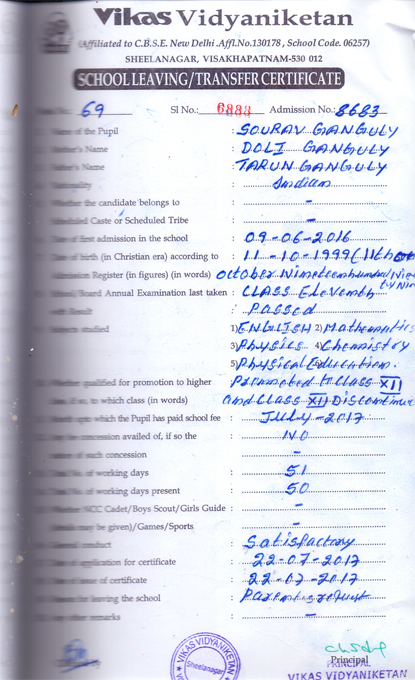 Vikas Vidyaniketan
(Affiliated to C.B.S.E. New Delhi .Affl.No.130178 , School Code. 06257)
SHEELANAGAR, VISAKHAPATNAM-530 012
SCHOOL LEAVING/TRANSFER CERTIFICATE
No.: 69 Sl No.: 6883 Admission No.: 8683
Name of the Pupil : SOURAV GANGULY
Mother's Name : DOLI GANGULY
Father's Name : TARUN GANGULY
Nationality : Indian
Whether the candidate belongs to : -
Scheduled Caste or Scheduled Tribe
Date of first admission in the school : 09-06-2016
Date of birth (in Christian era) according to : 11-10-1999 (11th
Admission Register (in figures) (in words) October Nineteen hundred
School/Board Annual Examination last taken : CLASS Eleventh
with Result : Passed
Subjects studied 1) ENGLISH 2) Mathematics
3) Physics 4) Chemistry
5) Physical Education.
Whether qualified for promotion to higher Promoted to Class XII
class, if so, to which class (in words) and Class XII Discontinue
upto which the Pupil has paid school fee : July-2017
Any fee concession availed of, if so the : NO
nature of such concession : -
Total No. of working days : 51
Total No. of working days present : 50
Whether NCC Cadet/Boys Scout/Girls Guide : -
(details may be given)/Games/Sports -
conduct : Satisfactory
Date of application for certificate : 22-07-2017
Date of issue of certificate : 22-07-2017
Reason for leaving the school : Parents request
Any other remarks : -
VIKAS VIDYANIKETAN
Sheelanagar
Principal
PRINCIPAL
VIKAS VIDYANIKETAN